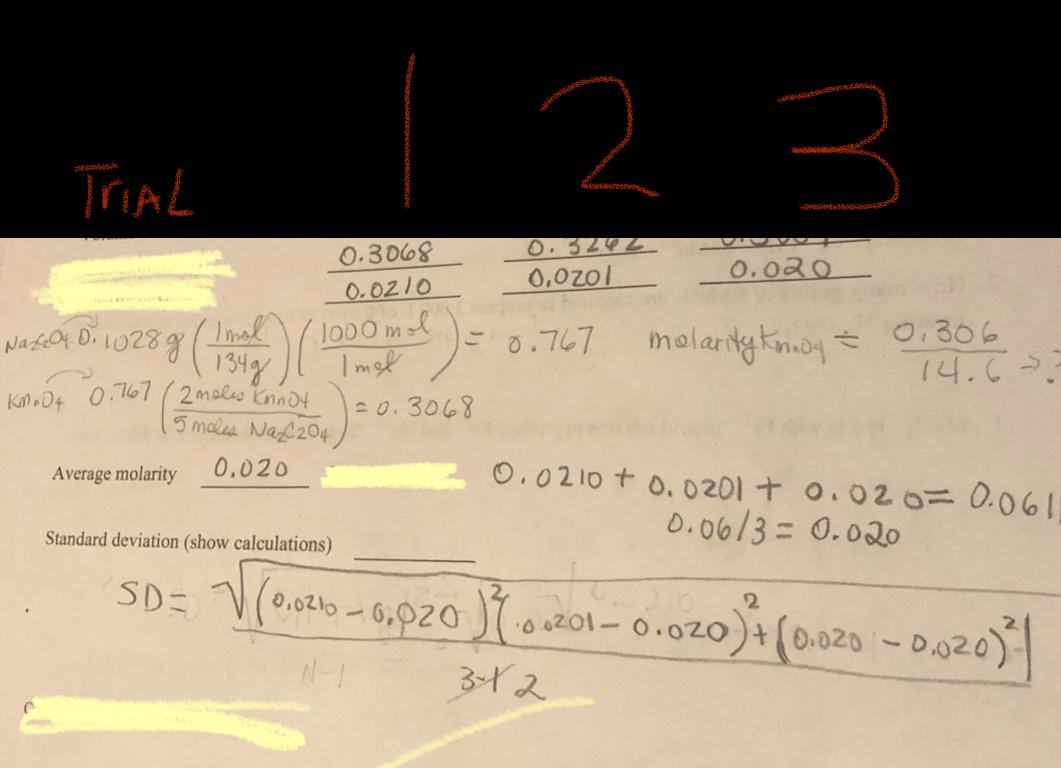 TRIAL 1 2 3
0.3068 0.3262
0.0210 0.0201 0.020
Na2C2O4 0.1028g (1mol/134g)(1000 mol/1mol) = 0.767 molarity KmnO4 = 0.306/14.6 →
KmnO4 0.767 (2 moles KmnO4/5 moles Na2C2O4) = 0.3068
Average molarity 0.020 0.0210 + 0.0201 + 0.020 = 0.061
0.06/3 = 0.020
Standard deviation (show calculations)
SD = √(0.0210 - 0.020)²(.00201 - 0.020)² + (0.020 - 0.020)²
N-1 3-1 2